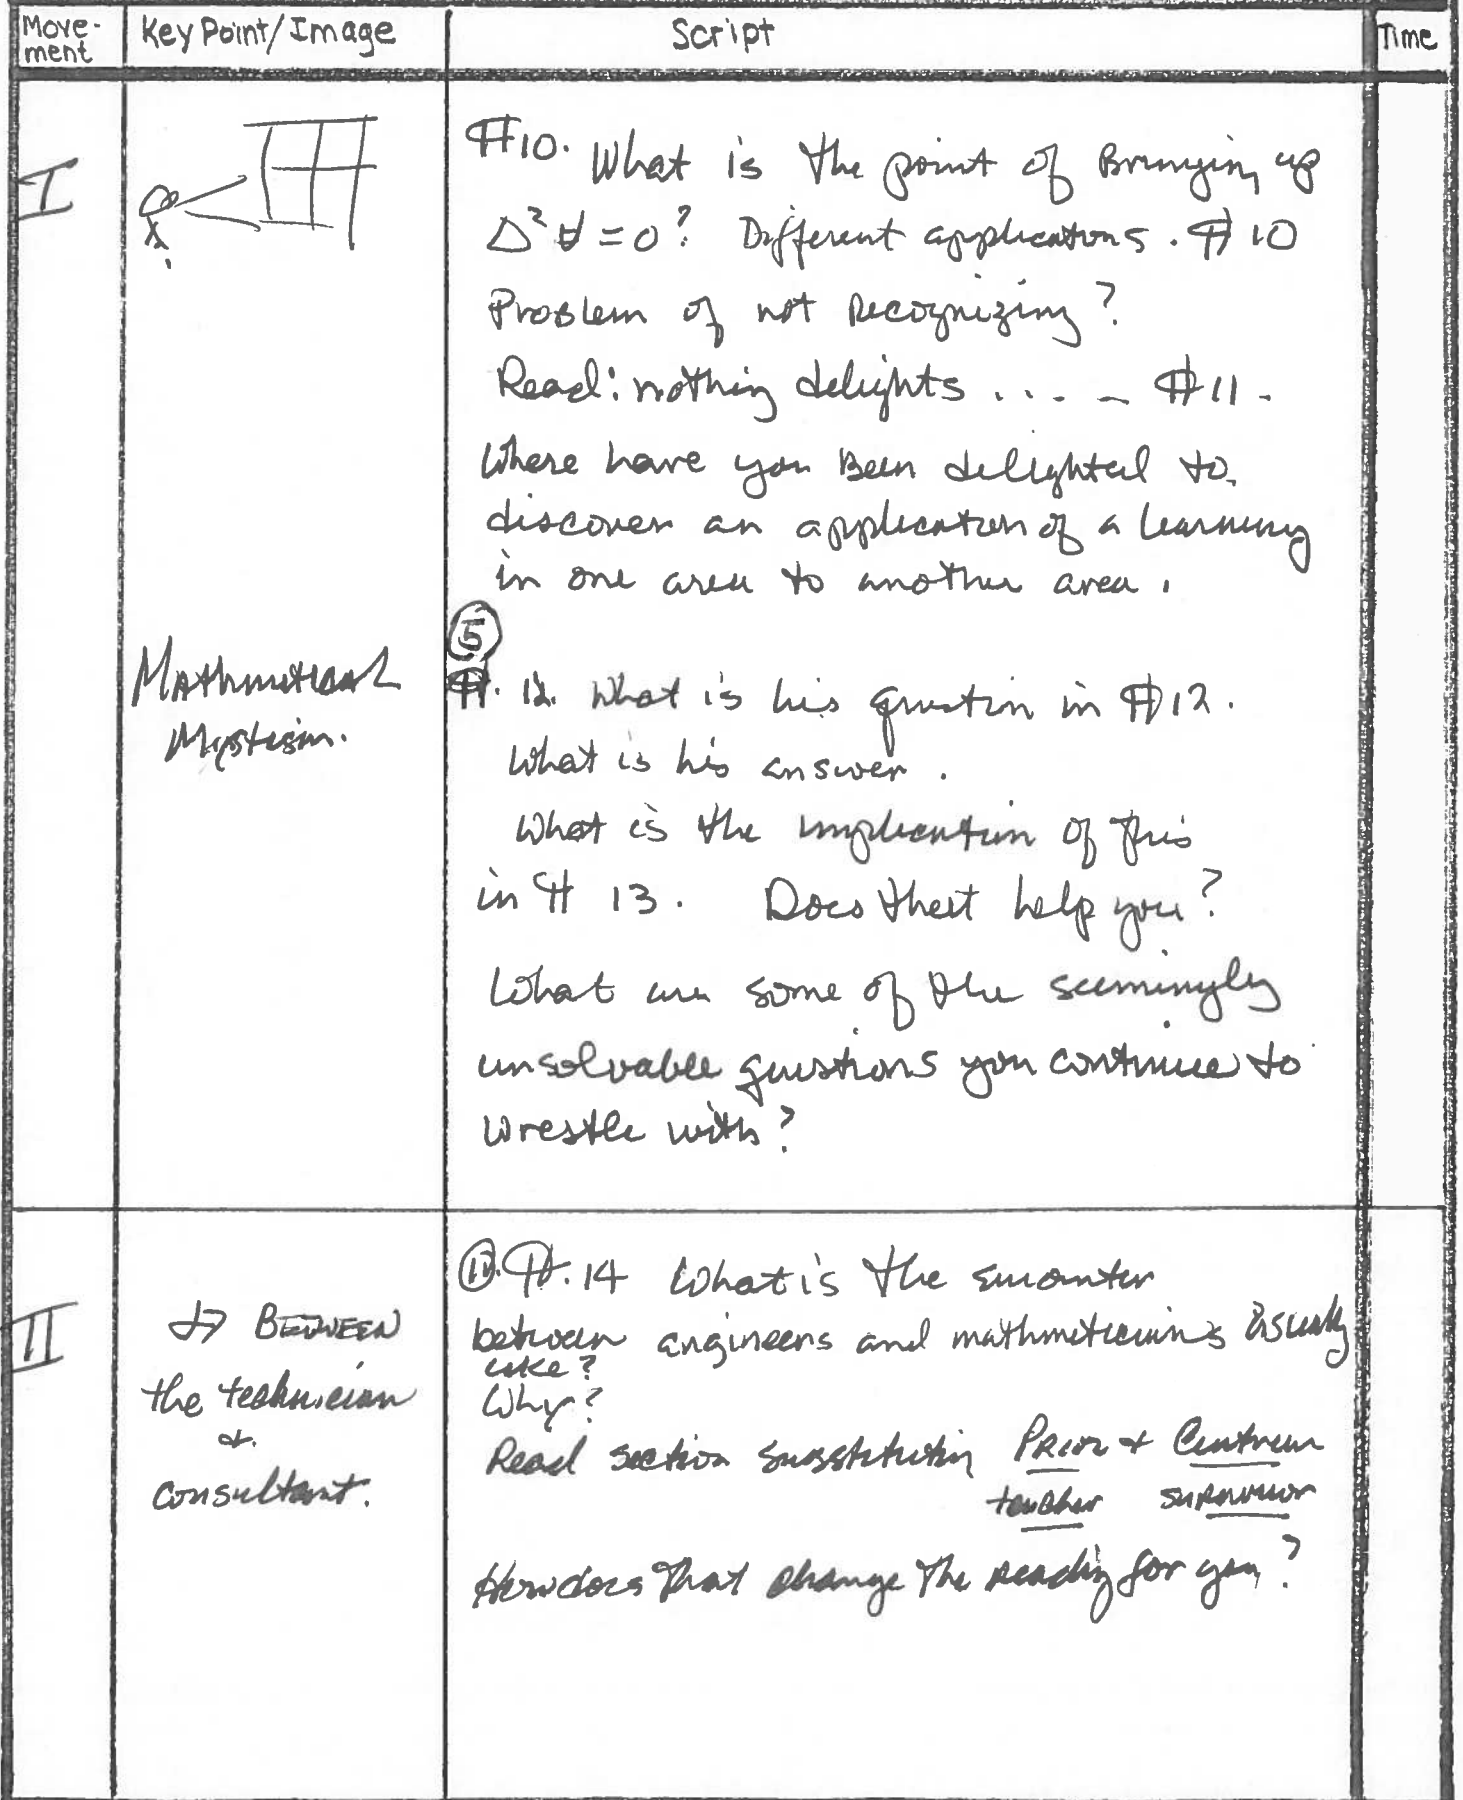 Move-
ment
Key Point/Image
Script
Time
I
#10. What is the point of Bringing up
Δ²∀=0? Different applications. #10
Problem of not Recognizing?
Read: nothing delights ..... #11.
Where have you Been delighted to
discover an application of a learning
in one area to another area.
Mathmetical
Mysticism.
5
#. 12. What is his question in #12.
What is his answer.
What is the implication of this
in # 13. Does that help you?
What are some of the seemingly
unsolvable questions you continue to
wrestle with?
II
BETWEEN
the technician
&
consultant.
11. #.14 What is the encounter
between engineers and mathmeticians usually
like?
Why?
Read section substituting Prior & Centrum
teacher supervisor
How does that change the reading for you?